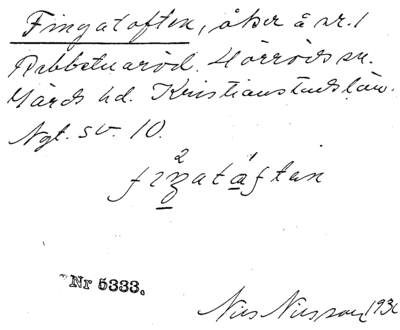 Fingatoften, åker å nr. 1
Rebbetuaröd. Hörröds sn.
Gärds hd. Kristianstads län.
Ngt. sv. 10.
Nr 5333.
Nils Nilsson 193